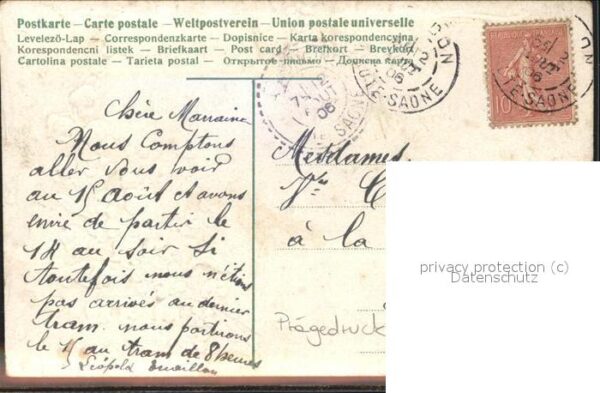 Postkarte – Carte postale – Weltpostverein – Union postale universelle
Levelező-Lap – Correspondenzkarte – Dopisnice – Karta korespondencyjna
Korespondencni listek – Briefkaart – Post card – Brefkort – Brevkort
Cartolina postale – Tarjeta postal – Открытое письмо – Дописна карта
Chère Marraine
Nous Comptons
aller vous voir
au 15 Août et avons
envie de partir le
14 au soir Si
toutefois nous n'étions
pas arrivés au dernier
tram. nous partirons
le 15 au tram de 8 heures
Léopold
Mesdames
Vve C
à la
Prägedruck
06
HTE-SAONE
SAONE
AOUT
06
10
06
TE-SAONE
privacy protection (c)
Datenschutz